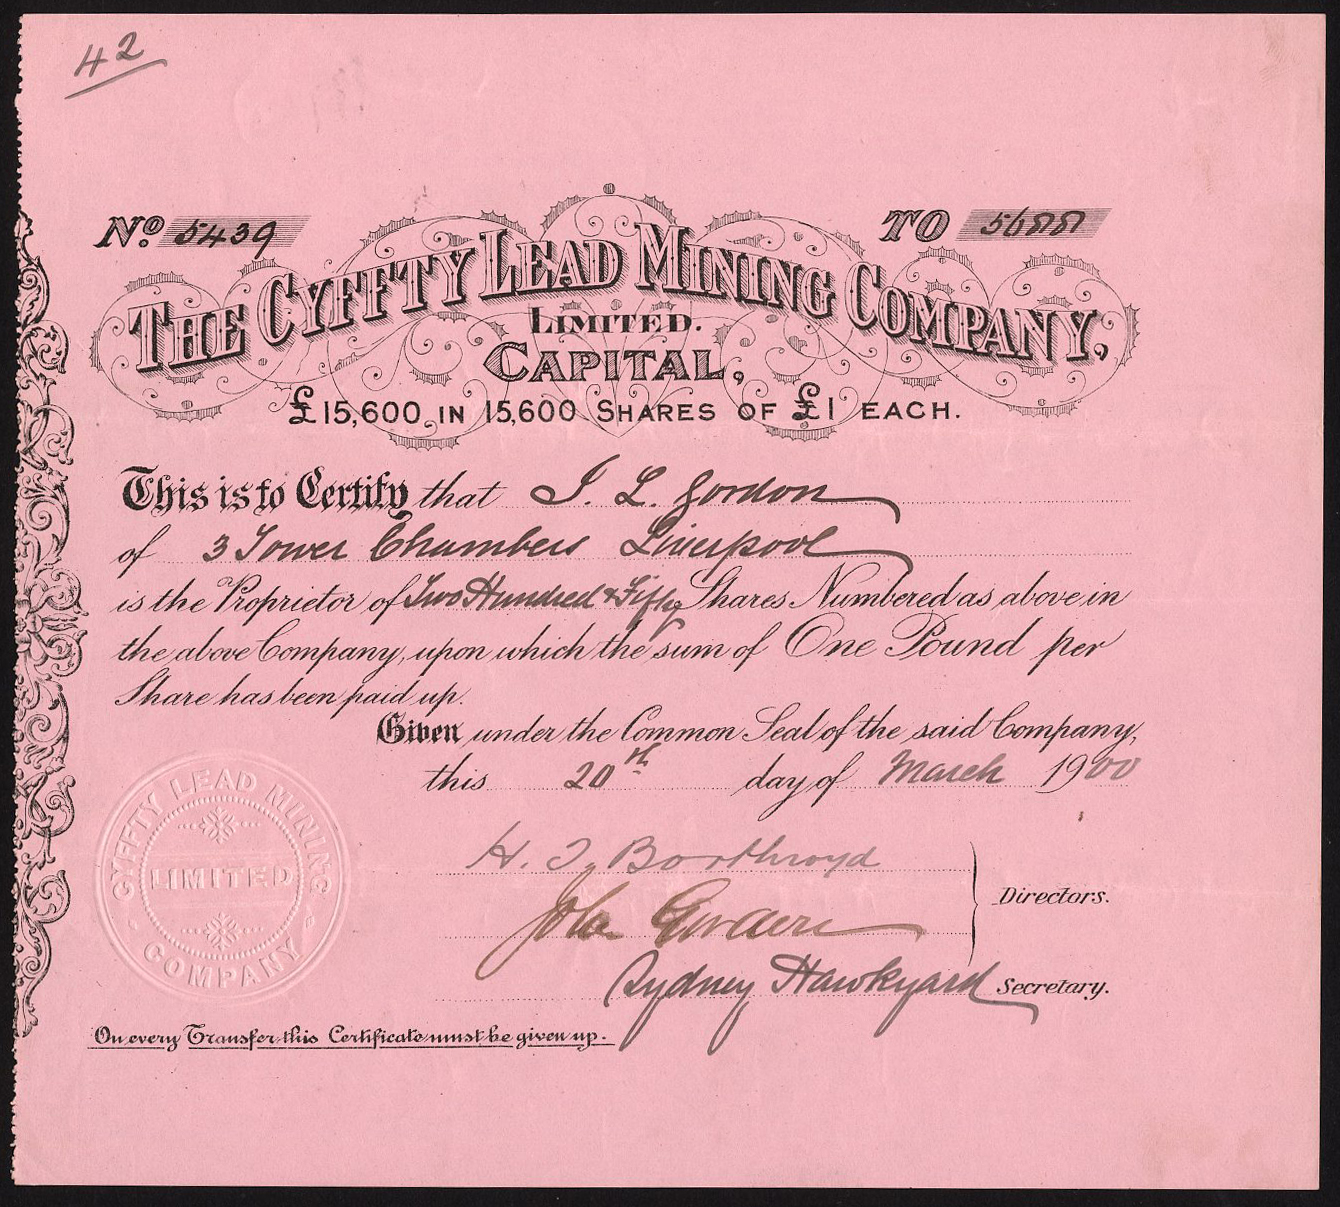 42
No. 5439 TO 5688
THE CYFFTY LEAD MINING COMPANY,
LIMITED.
CAPITAL,
£15,600 IN 15,600 SHARES OF £1 EACH.
This is to Certify that J. L. Gordon
of 3 Tower Chambers Liverpool
is the Proprietor of Two Hundred & Fifty Shares Numbered as above in
the above Company, upon which the sum of One Pound per
Share has been paid up.
Given under the Common Seal of the said Company,
this 20th day of March 1900
H. J. Boothroyd
John Gordon
Directors.
Sydney Hawkyard Secretary.
CYFFTY LEAD MINING
LIMITED
COMPANY
On every Transfer this Certificate must be given up.